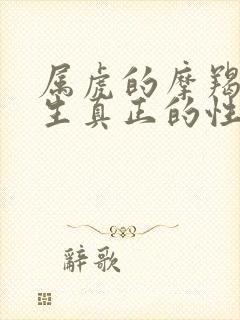 属虎的摩羯
生真正的性
辭歌